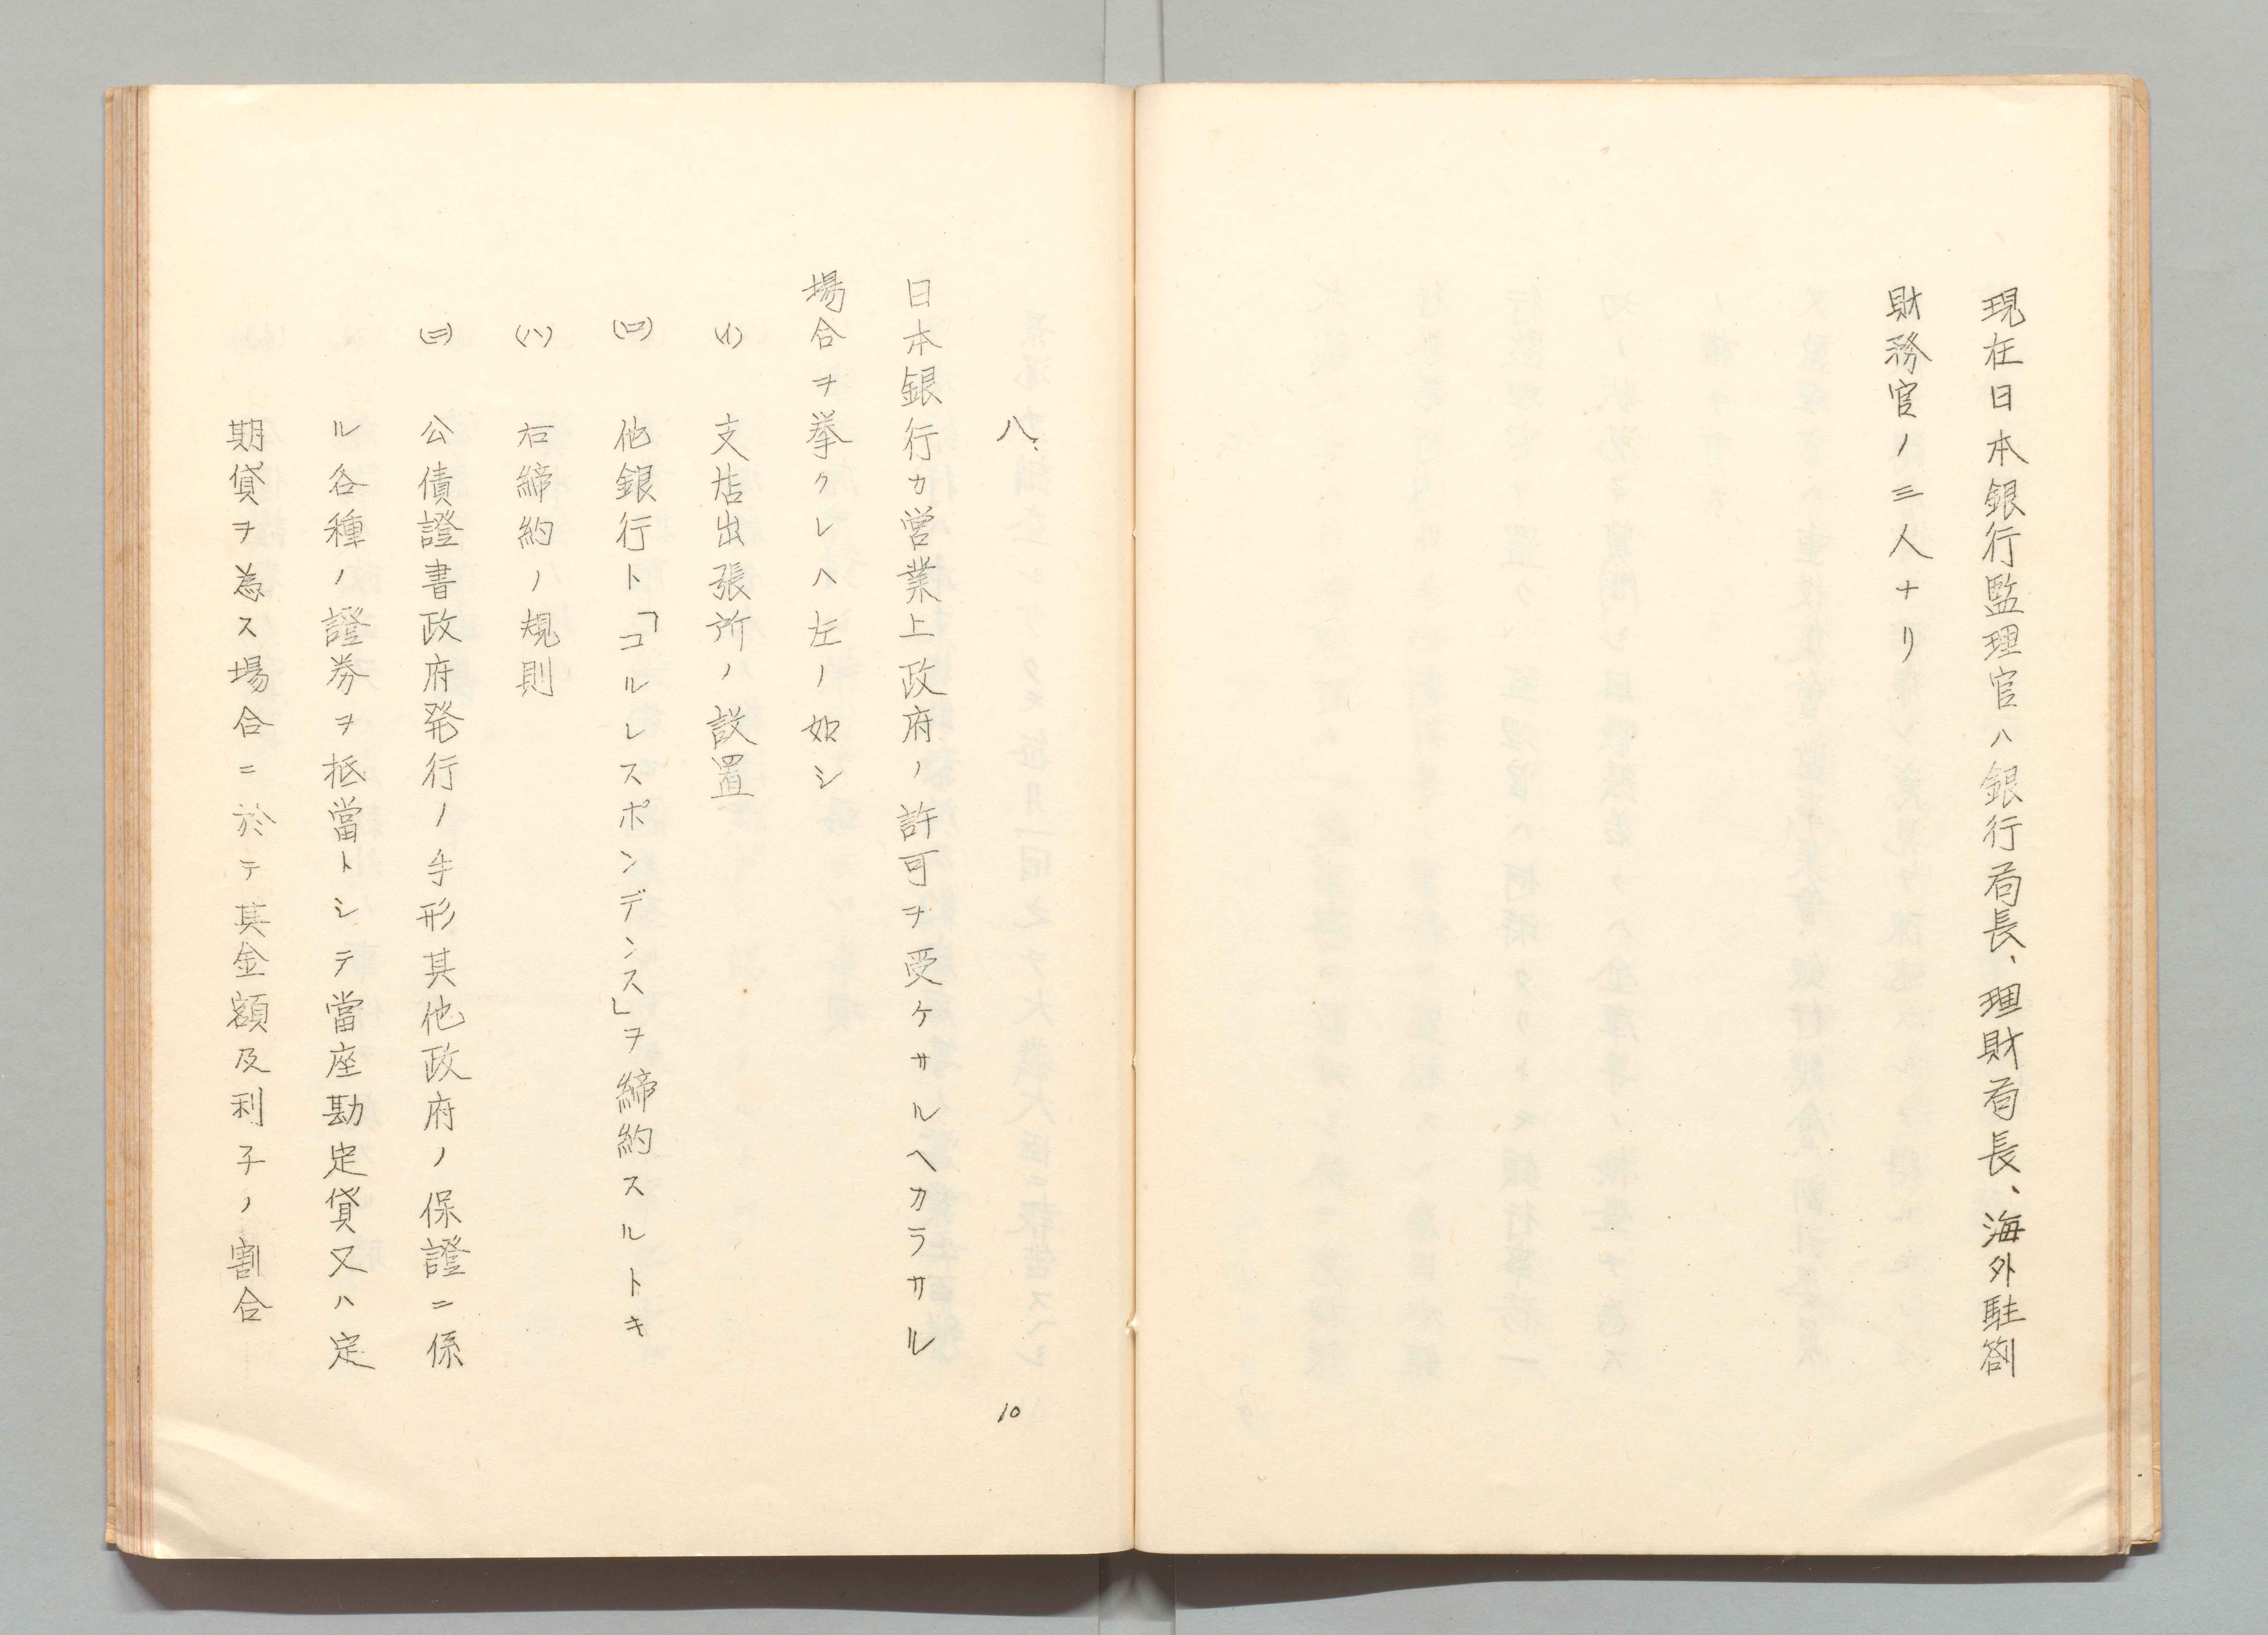 現在日本銀行監理官ハ銀行局長、理財局長、海外駐箚
財務官ノ三人ナリ
八、
日本銀行カ営業上政府ノ許可ヲ受ケサルヘカラサル
場合ヲ挙クレハ左ノ如シ
(イ) 支店出張所ノ設置
(ロ) 他銀行ト「コルレスポンデンス」ヲ締約スルトキ
(ハ) 右締約ノ規則
(ニ) 公債證書政府発行ノ手形其他政府ノ保證ニ係
ル各種ノ證券ヲ抵當トシテ當座勘定貸又ハ定
期貸ヲ為ス場合ニ於テ其金額及利子ノ割合
10